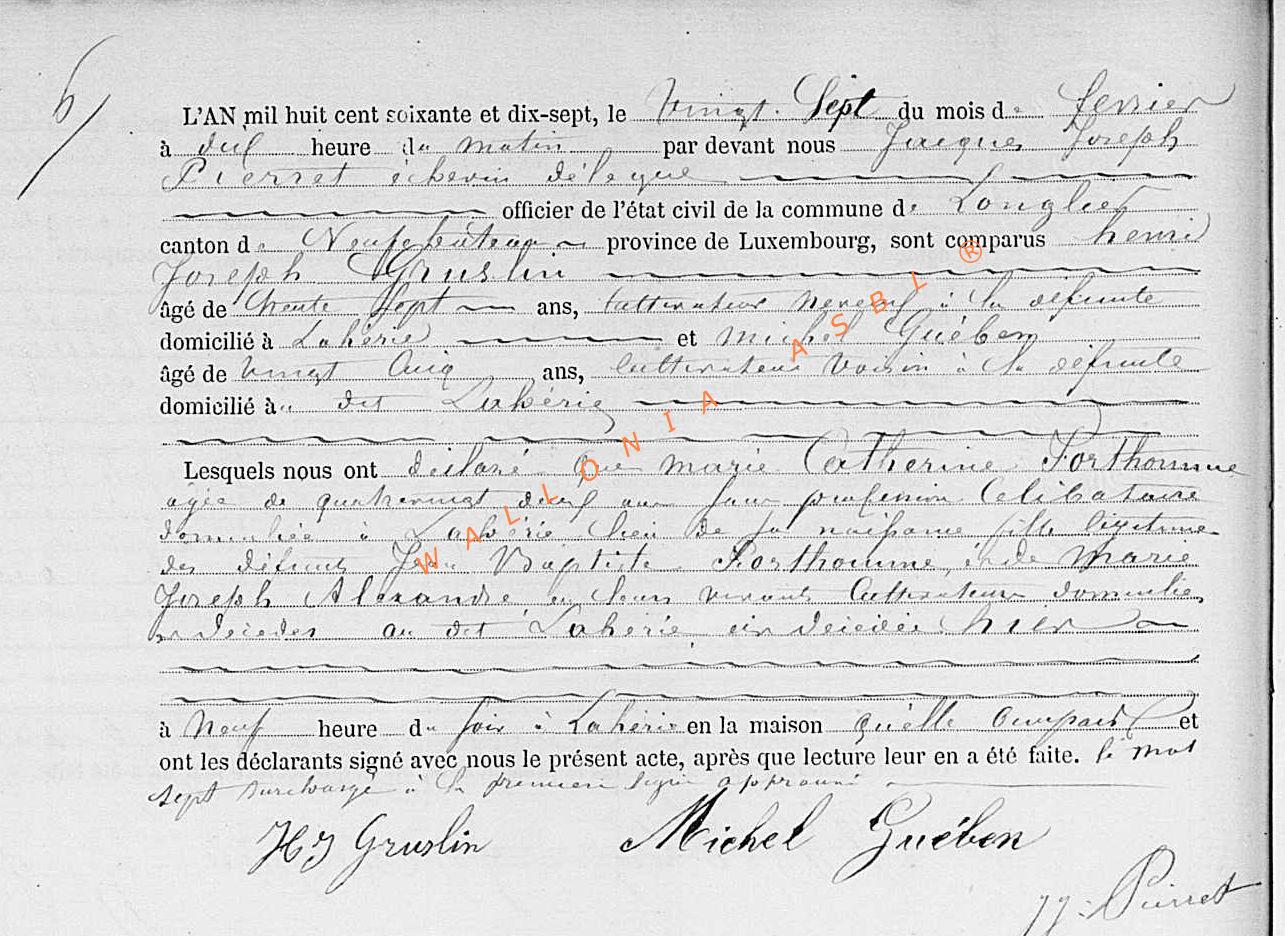 6/
L'AN mil huit cent soixante et dix-sept, le vingt Sept du mois de fevrier
à dix heure du matin par devant nous Jacques Joseph
Pierret échevin délégué
officier de l'état civil de la commune de Longlier
canton de Neufchateau province de Luxembourg, sont comparus henri
Joseph Gruslin
âgé de trente Sept ans, Cultivateur neveu à la défunte
domicilié à Lahérie et michel Guében
âgé de vingt Cinq ans, Cultivateur voisin à la défunte
domicilié au dit Lahérie
Lesquels nous ont déclaré que marie Catherine Forthomme
agée de quatrevingt deux ans sans profession Célibataire
domiciliée à Lahérie lieu de sa naissance fille légitime
des défunts Jean Baptiste Forthomme, et de Marie
Joseph Alexandre, en leur vivant Cultivateurs domiciliés
et décédés au dit Lahérie, est décédée hier
à Neuf heure du soir à Lahérie en la maison qu'elle occupait et
ont les déclarants signé avec nous le présent acte, après que lecture leur en a été faite. le mot
sept surchargé à la premiere ligne approuvé
HJ Gruslin Michel Guében
JJ: Pierret
WALLONIA ASBL ®